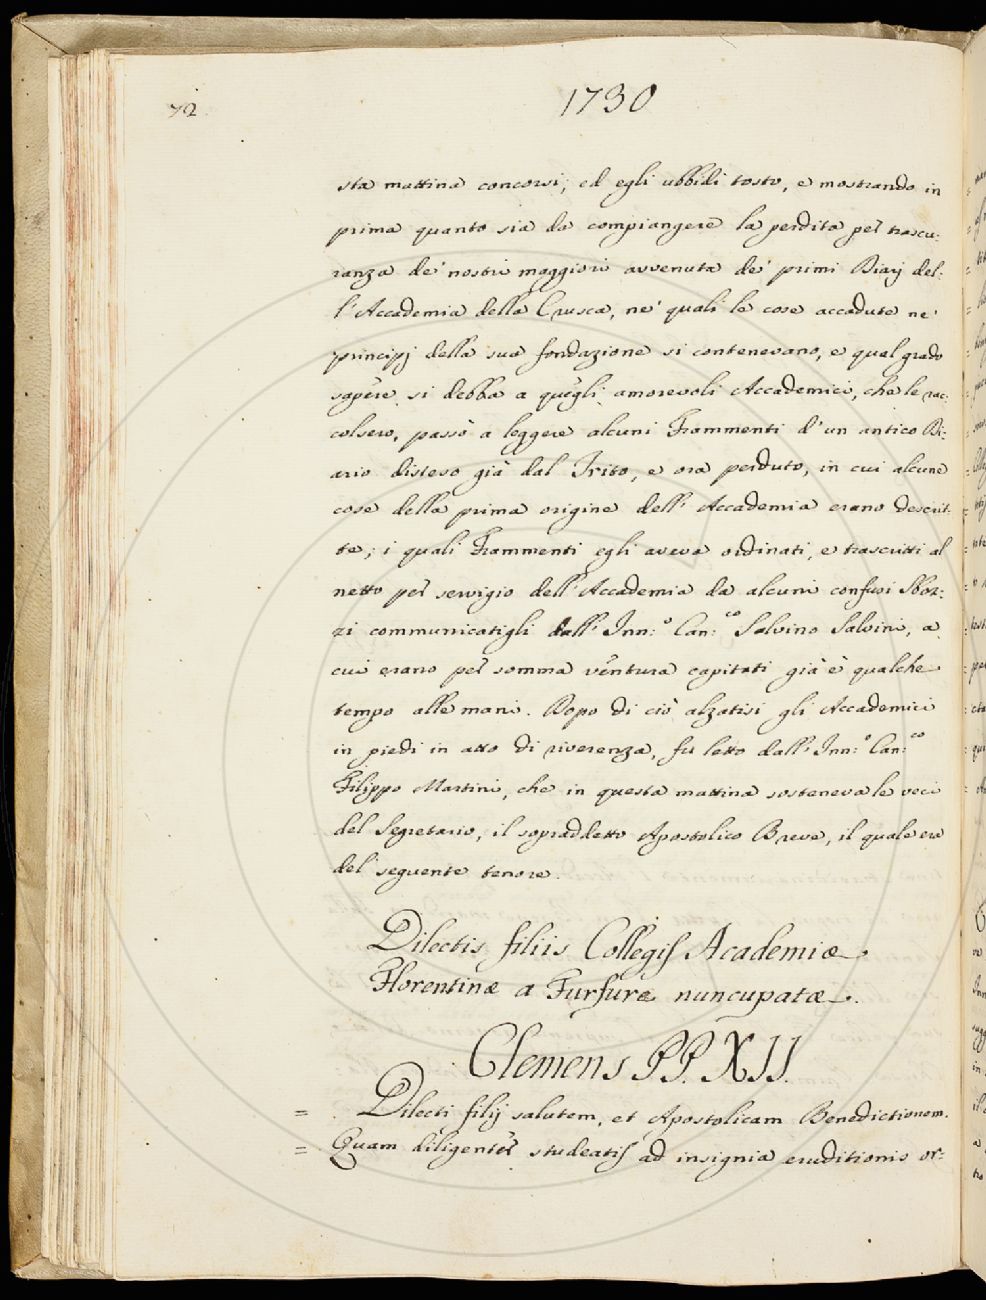 72
1730
sta mattina concorsi; ed egli ubbidì tosto, e mostrando in
prima quanto sia da compiangere la perdita per trascu:
ranza de' nostri maggiori avvenuta de' primi Diarj del:
l'Accademia della Crusca, ne' quali le cose accadute ne'
principj della sua fondazione si contenevano, e qual grado
sapere si debba a quegli amorevoli Accademici, che le rac:
colsero, passò a leggere alcuni Frammenti d'un antico Di:
ario disteso già dal Trito, e ora perduto, in cui alcune
cose della prima origine dell'Accademia erano descrit:
te; i quali Frammenti egli aveva ordinati, e trascritti al
netto per servigio dell'Accademia da alcuni confusi Sboz:
zi communicatigli dall'Inn:o Can:co Salvino Salvini, a
cui erano per somma ventura capitati già è qualche
tempo alle mani. Dopo di ciò alzatisi gli Accademici
in piedi in atto di riverenza, fu letto dall'Inn:o Can:co
Filippo Martini, che in questa mattina sosteneva le veci
del Segretario, il sopraddetto Apostolico Breve, il quale era
del seguente tenore.
Dilectis filiis Collegis Academiæ
Florentinæ a Furfure nuncupatæ.
Clemens PP. XII.
= Dilecti filij salutem, et Apostolicam Benedictionem.
= Quam diligenter studeatis ad insignia eruditionis or: